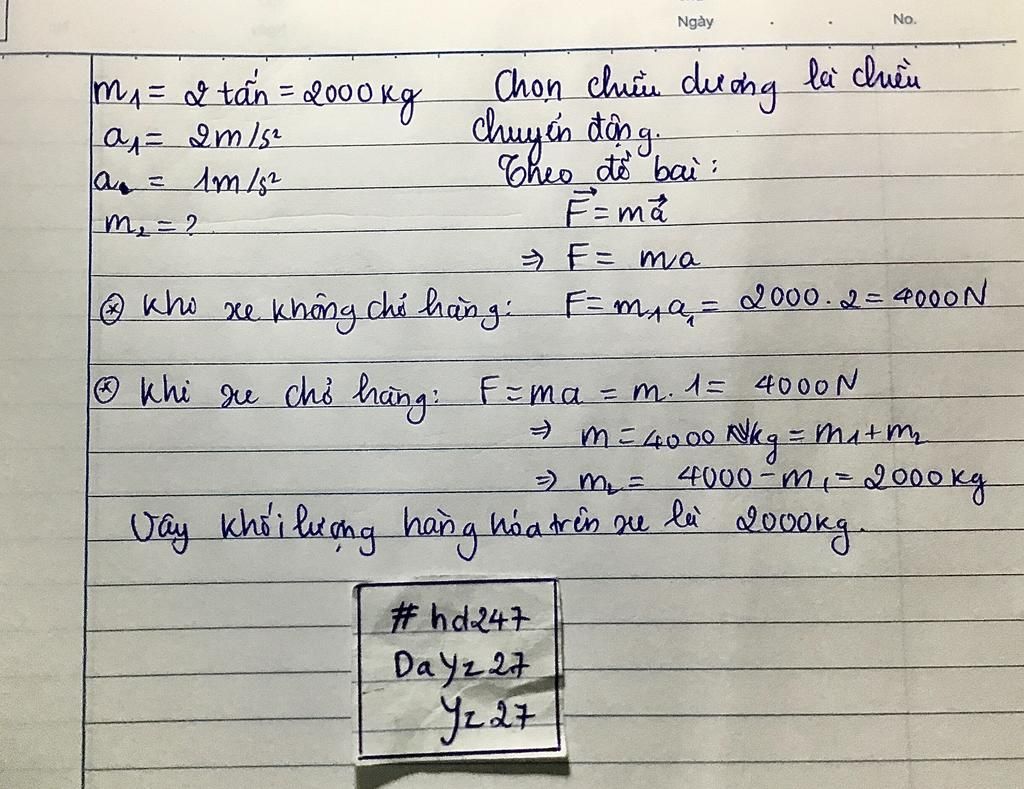 Ngày . . No.
m₁ = 2 tấn = 2000kg
a₁ = 2m/s²
a = 1m/s²
m₂ = ?
Chọn chiều dương là chiều
chuyển động.
Theo đề bài:
F⃗ = ma⃗
⇒ F = ma
⊛ Khi xe không chở hàng: F = m₁a₁ = 2000.2 = 4000N
⊛ Khi xe chở hàng: F = ma = m.1 = 4000N
⇒ m = 4000 kg = m₁+m₂
⇒ m₂ = 4000 - m₁ = 2000kg
Vậy khối lượng hàng hóa trên xe là 2000kg.
# hd247
DaYz27
Yz27